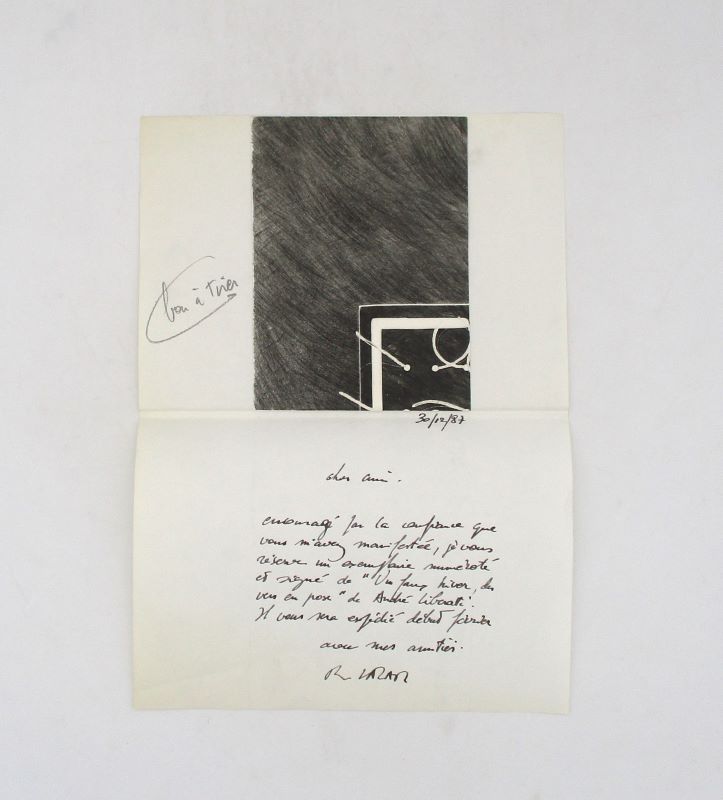 bon à tirer
30/12/87
cher ami.
encouragé par la confiance que
vous m'avez manifestée, je vous
réserve un exemplaire numéroté
et signé de "Un faux hiver, des
vers en prose" de André Liberati.
Il vous sera expédié début février
avec mes amitiés.